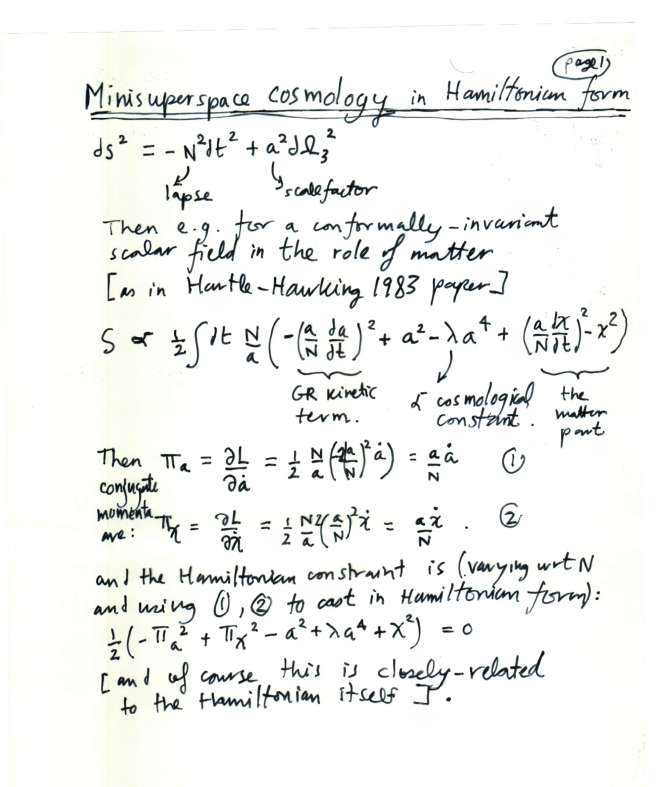 page 1
Minisuperspace cosmology in Hamiltonian form
ds² = - N²dt² + a²dΩ₃²
lapse scale factor
Then e.g. for a conformally-invariant
scalar field in the role of matter
[as in Hartle-Hawking 1983 paper]
S ∝ ½ ∫dt N/a (-(a/N da/dt)² + a² - λa⁴ + (a/N dχ/dt)² - χ²)
GR kinetic ∝ cosmological the
term. constant. matter
part
Then Πa = ∂L/∂ȧ = ½ N/a (-2(a/N)² ȧ) = a/N ȧ ①
conjugate
momenta
are: Πχ = ∂L/∂χ̇ = ½ N/a 2(a/N)² χ̇ = a/N χ̇ . ②
and the Hamiltonian constraint is (varying wrt N
and using ①, ② to cast in Hamiltonian form):
½(-Πa² + Πχ² - a² + λa⁴ + χ²) = 0
[and of course this is closely-related
to the Hamiltonian itself].